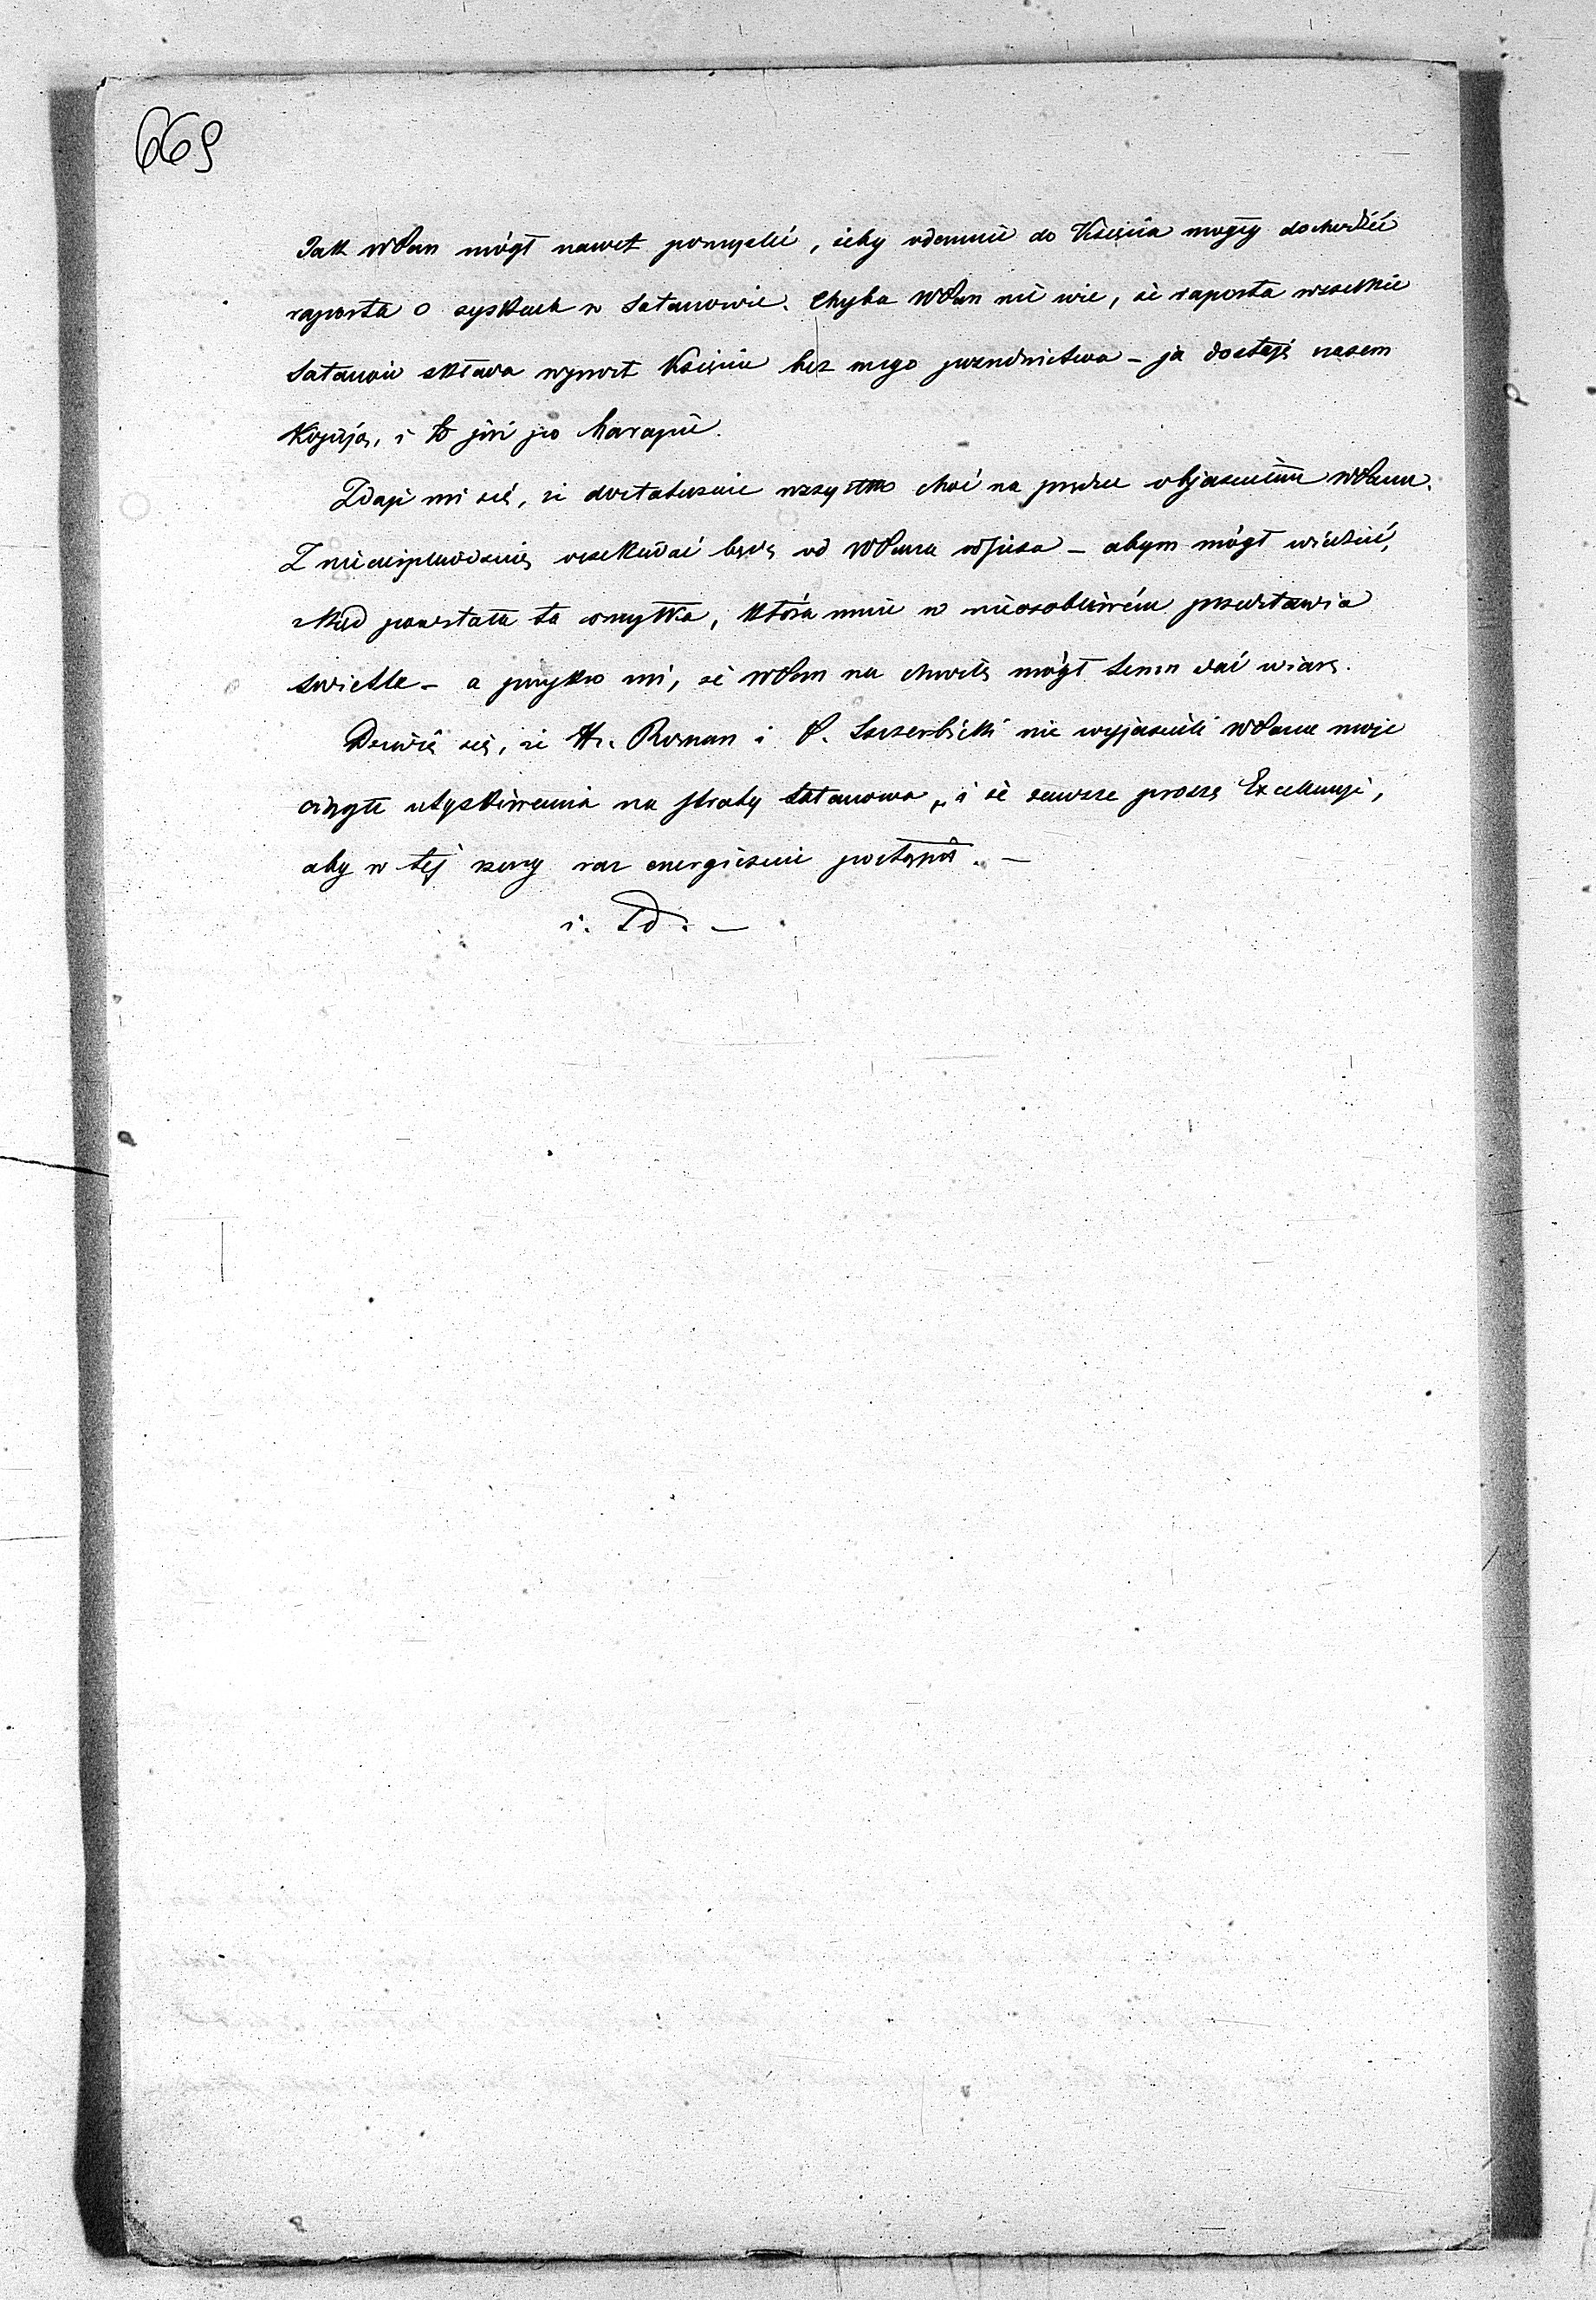 669
Jak WPan mógł nawet pomyśleć, żeby odemnie do Księcia mogły dochodzić
raporta o zyskach w Satanowie. Chyba WPan nie wie, że raporta wszelkie
Satanów składa wprost Księciu bez mego pośrednictwa – ja dostaję czasem
Kopiją, i to już po harapie.
Zdaje mi się, że dostatecznie wszystko choć na prędce objaśniłem WPanu.
Z niecierpliwością oczekiwać będę od WPana odpisu – abym mógł wiedzieć,
zkąd powstała ta omyłka, która mnie w nieosobliwém przedstawia
świetle – a przykro mi, że WPan na chwilę mógł temu dać wiarę.
Dziwię się, że Hr. Roman i P. Szczerbicki nie wyjaśnili WPanu moje
ciągłe utyskiwania na straty Satanowa, i że zawsze proszę Excellencyi,
aby w tej mierze raz energicznie postąpił. –
i. Td. –